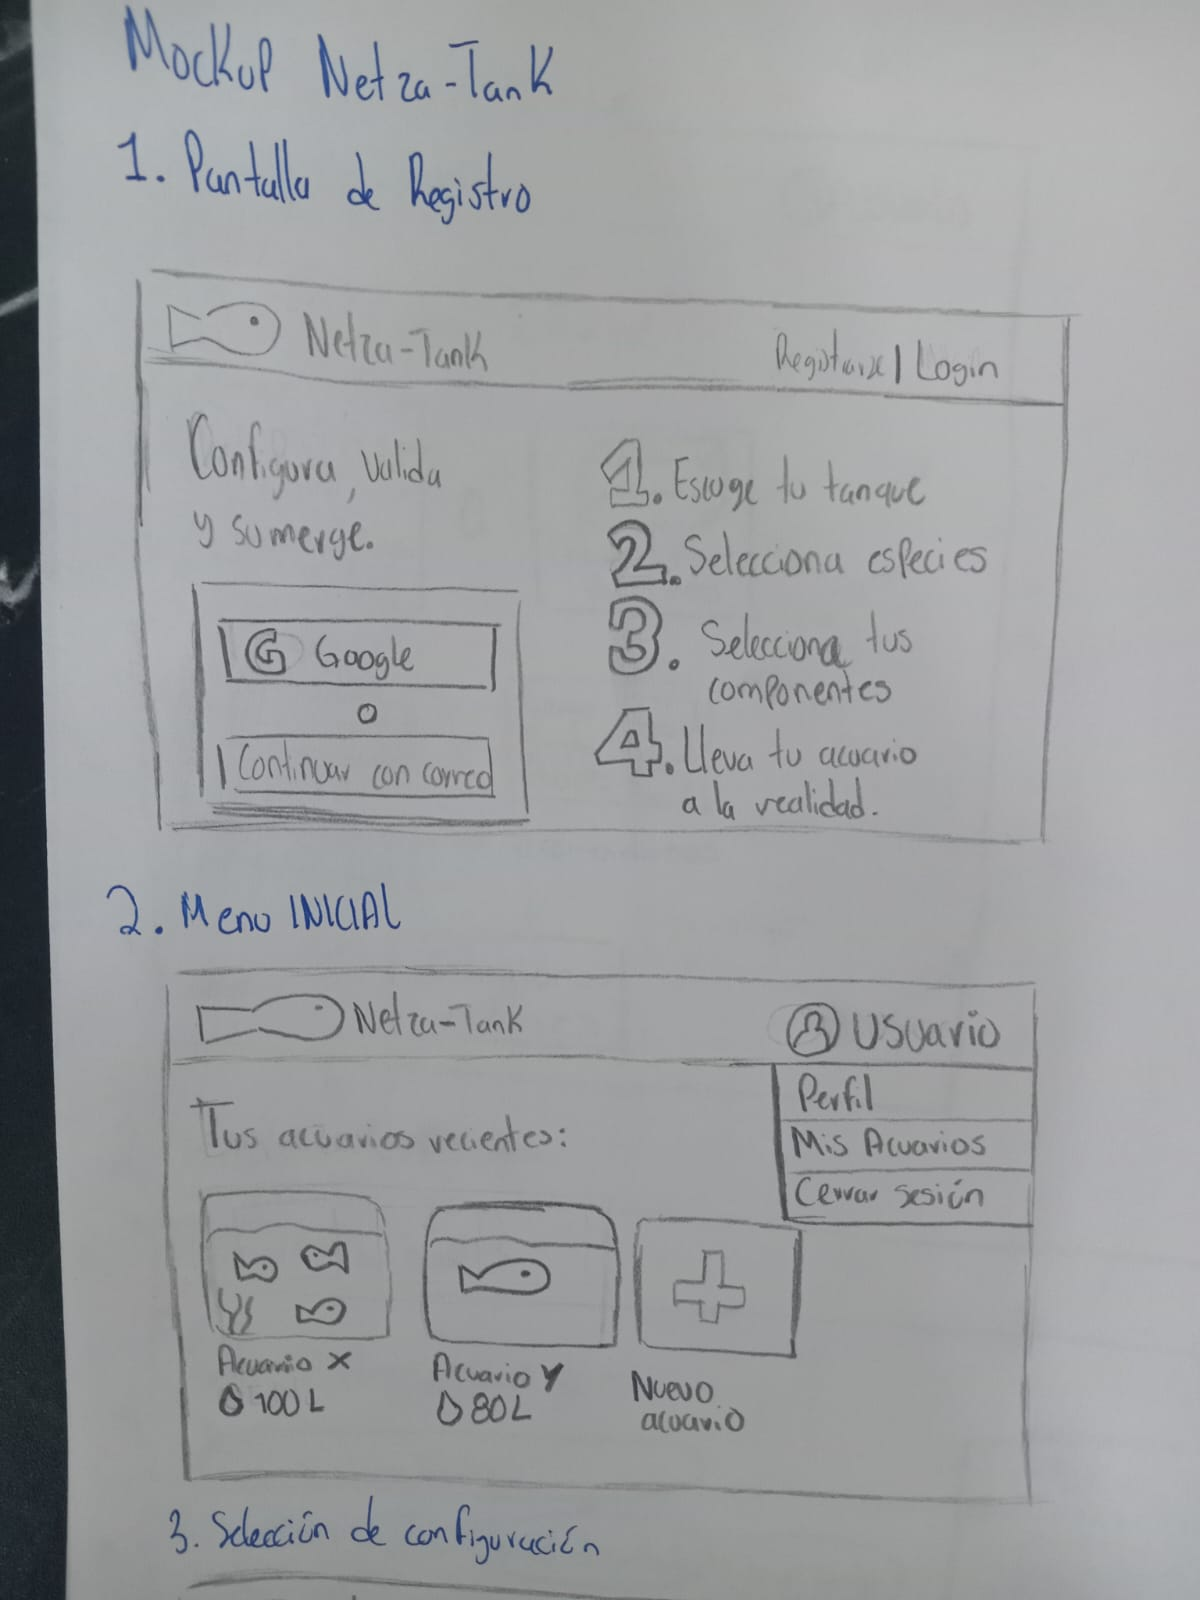 Mockup Netza-Tank
1. Pantalla de Registro
Netza-Tank
Registrarse | Login
Configura, valida
y sumerge.
G Google
o
Continuar con correo
1. Escoge tu tanque
2. Selecciona especies
3. Selecciona tus
componentes
4. Lleva tu acuario
a la realidad.
2. Menu INICIAL
Netza-Tank
Usuario
Perfil
Mis Acuarios
Cerrar sesión
Tus acuarios recientes:
Acuario X
100 L
Acuario Y
80 L
Nuevo
acuario
3. Selección de configuración